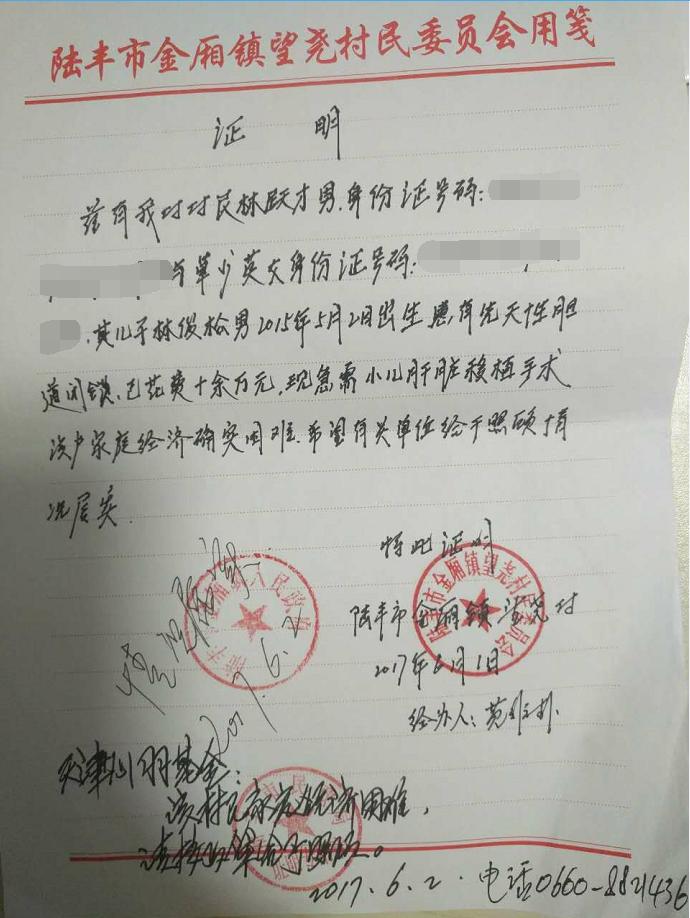 陆丰市金厢镇望尧村民委员会用笺
证 明
兹有我村村民林跃才男,身份证号码:
与单少英女身份证号码:
,其儿子林俊松男2015年5月2日出生患有先天性胆
道闭锁,已花费十余万元,现急需小儿肝脏移植手术
该户家庭经济确实困难,希望有关单位给于照顾情
况属实
特此证明
陆丰市金厢镇望尧村
2017年6月1日
经办人:黄
情况属实
2017.6.2
金厢镇人民政府
陆丰市金厢镇望尧村民委员会
天津 羽基金:
该村民家庭经济困难,
请 给予照顾。
2017.6.2. 电话0660-8821436